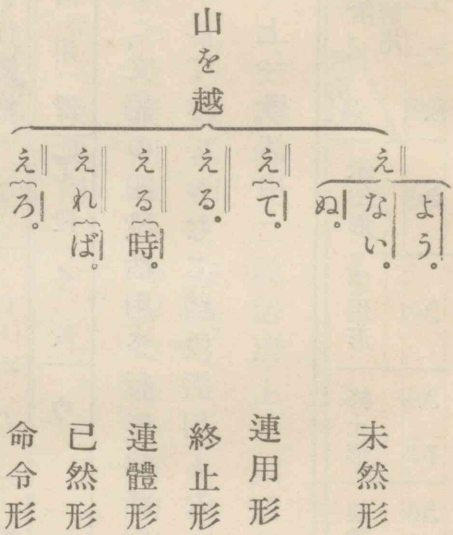 山を越
え
よう。
ない。
ぬ
未然形
えて。
連用形
える。
終止形
える時。
連體形
えれば。
已然形
えろ。
命令形